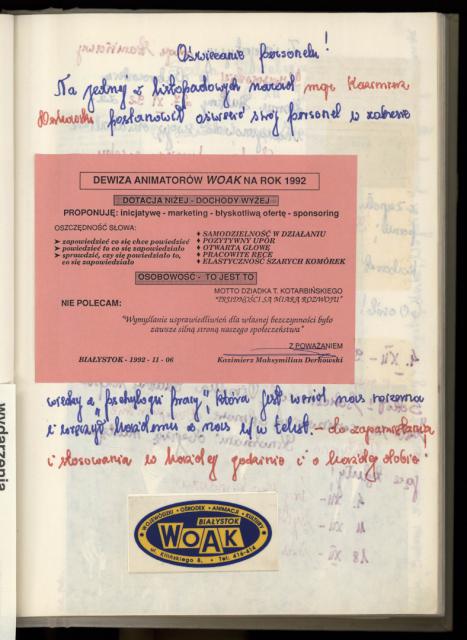 Oświecanie personelu!
Na jednej z listopadowych narad mgr Kazimierz
Derkowski postanowił oświecić swój personel w zakresie
DEWIZA ANIMATORÓW WOAK NA ROK 1992
DOTACJA NIŻEJ - DOCHODY WYŻEJ
PROPONUJĘ: inicjatywę - marketing - błyskotliwą ofertę - sponsoring
OSZCZĘDNOŚĆ SŁOWA:
➤ zapowiedzieć co się chce powiedzieć
➤ powiedzieć to co się zapowiedziało
➤ sprawdzić, czy się powiedziało to,
co się zapowiedziało
♦ SAMODZIELNOŚĆ W DZIAŁANIU
♦ POZYTYWNY UPÓR
♦ OTWARTĄ GŁOWĘ
♦ PRACOWITE RĘCE
♦ ELASTYCZNOŚĆ SZARYCH KOMÓREK
OSOBOWOŚĆ - TO JEST TO
MOTTO DZIADKA T. KOTARBIŃSKIEGO
"TRUDNOŚCI SĄ MIARĄ ROZWOJU"
NIE POLECAM:
"Wymyślanie usprawiedliwień dla własnej bezczynności było
zawsze silną stroną naszego społeczeństwa"
Z POWAŻANIEM
BIAŁYSTOK - 1992 - 11 - 06
Kazimierz Maksymilian Derkowski
wiedzy z "psychologii pracy", która jest wśród nas
i wręczył każdemu z nas w/w tekst. – do zapamiętania
i stosowania w każdej godzinie i o każdej dobie
WOJEWÓDZKI • OŚRODEK • ANIMACJI • KULTURY
BIAŁYSTOK
WOAK
ul. Kilińskiego 8, • Tel. 416-414
wydarzenia